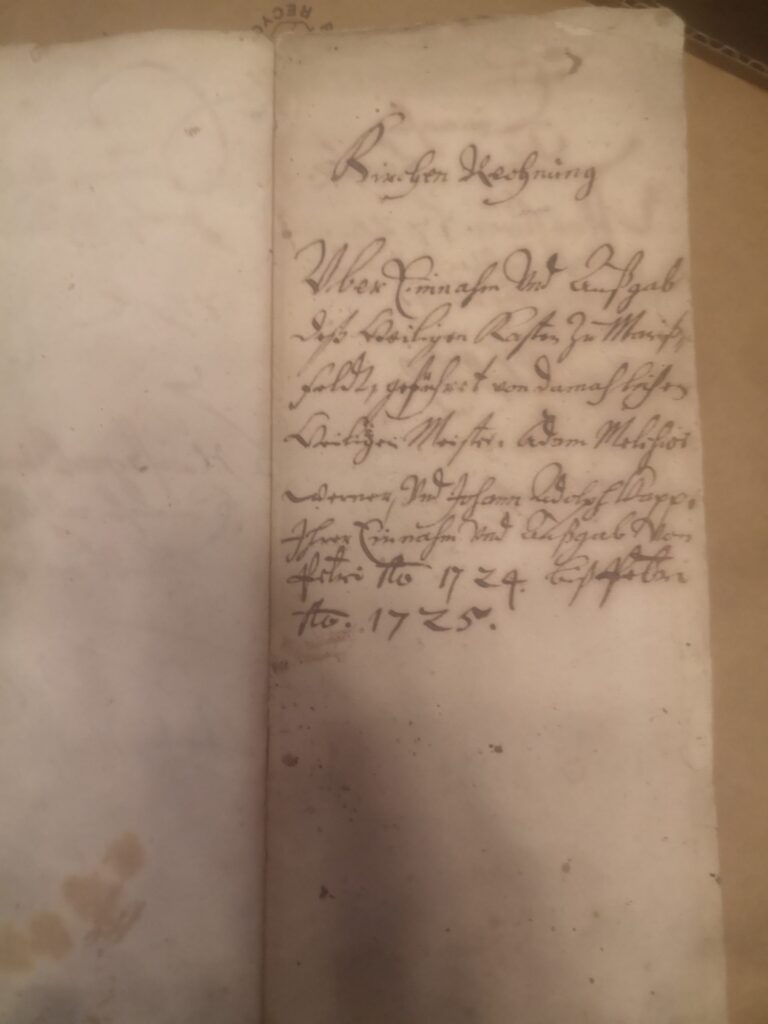 RECYC
Kirchen Rechnung
Uber Einnahm Und Außgab
deß Heiligen Kasten Zu Mariß,
feldt, geführet von damahlichen
Heiligen Meister. Adam Melchior
Werner, Und Johann Adolph Kapp.
Ihrer Einnahm und Außgab Von
Petri Ao 1724. biß Petri
Ao. 1725.